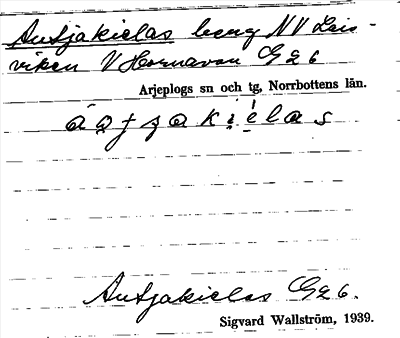 Autjakielas berg NV Lais-
viken V Hornavan G 2 6
Arjeplogs sn och tg, Norrbottens län.
Autjakielas G 2 6.
Sigvard Wallström, 1939.